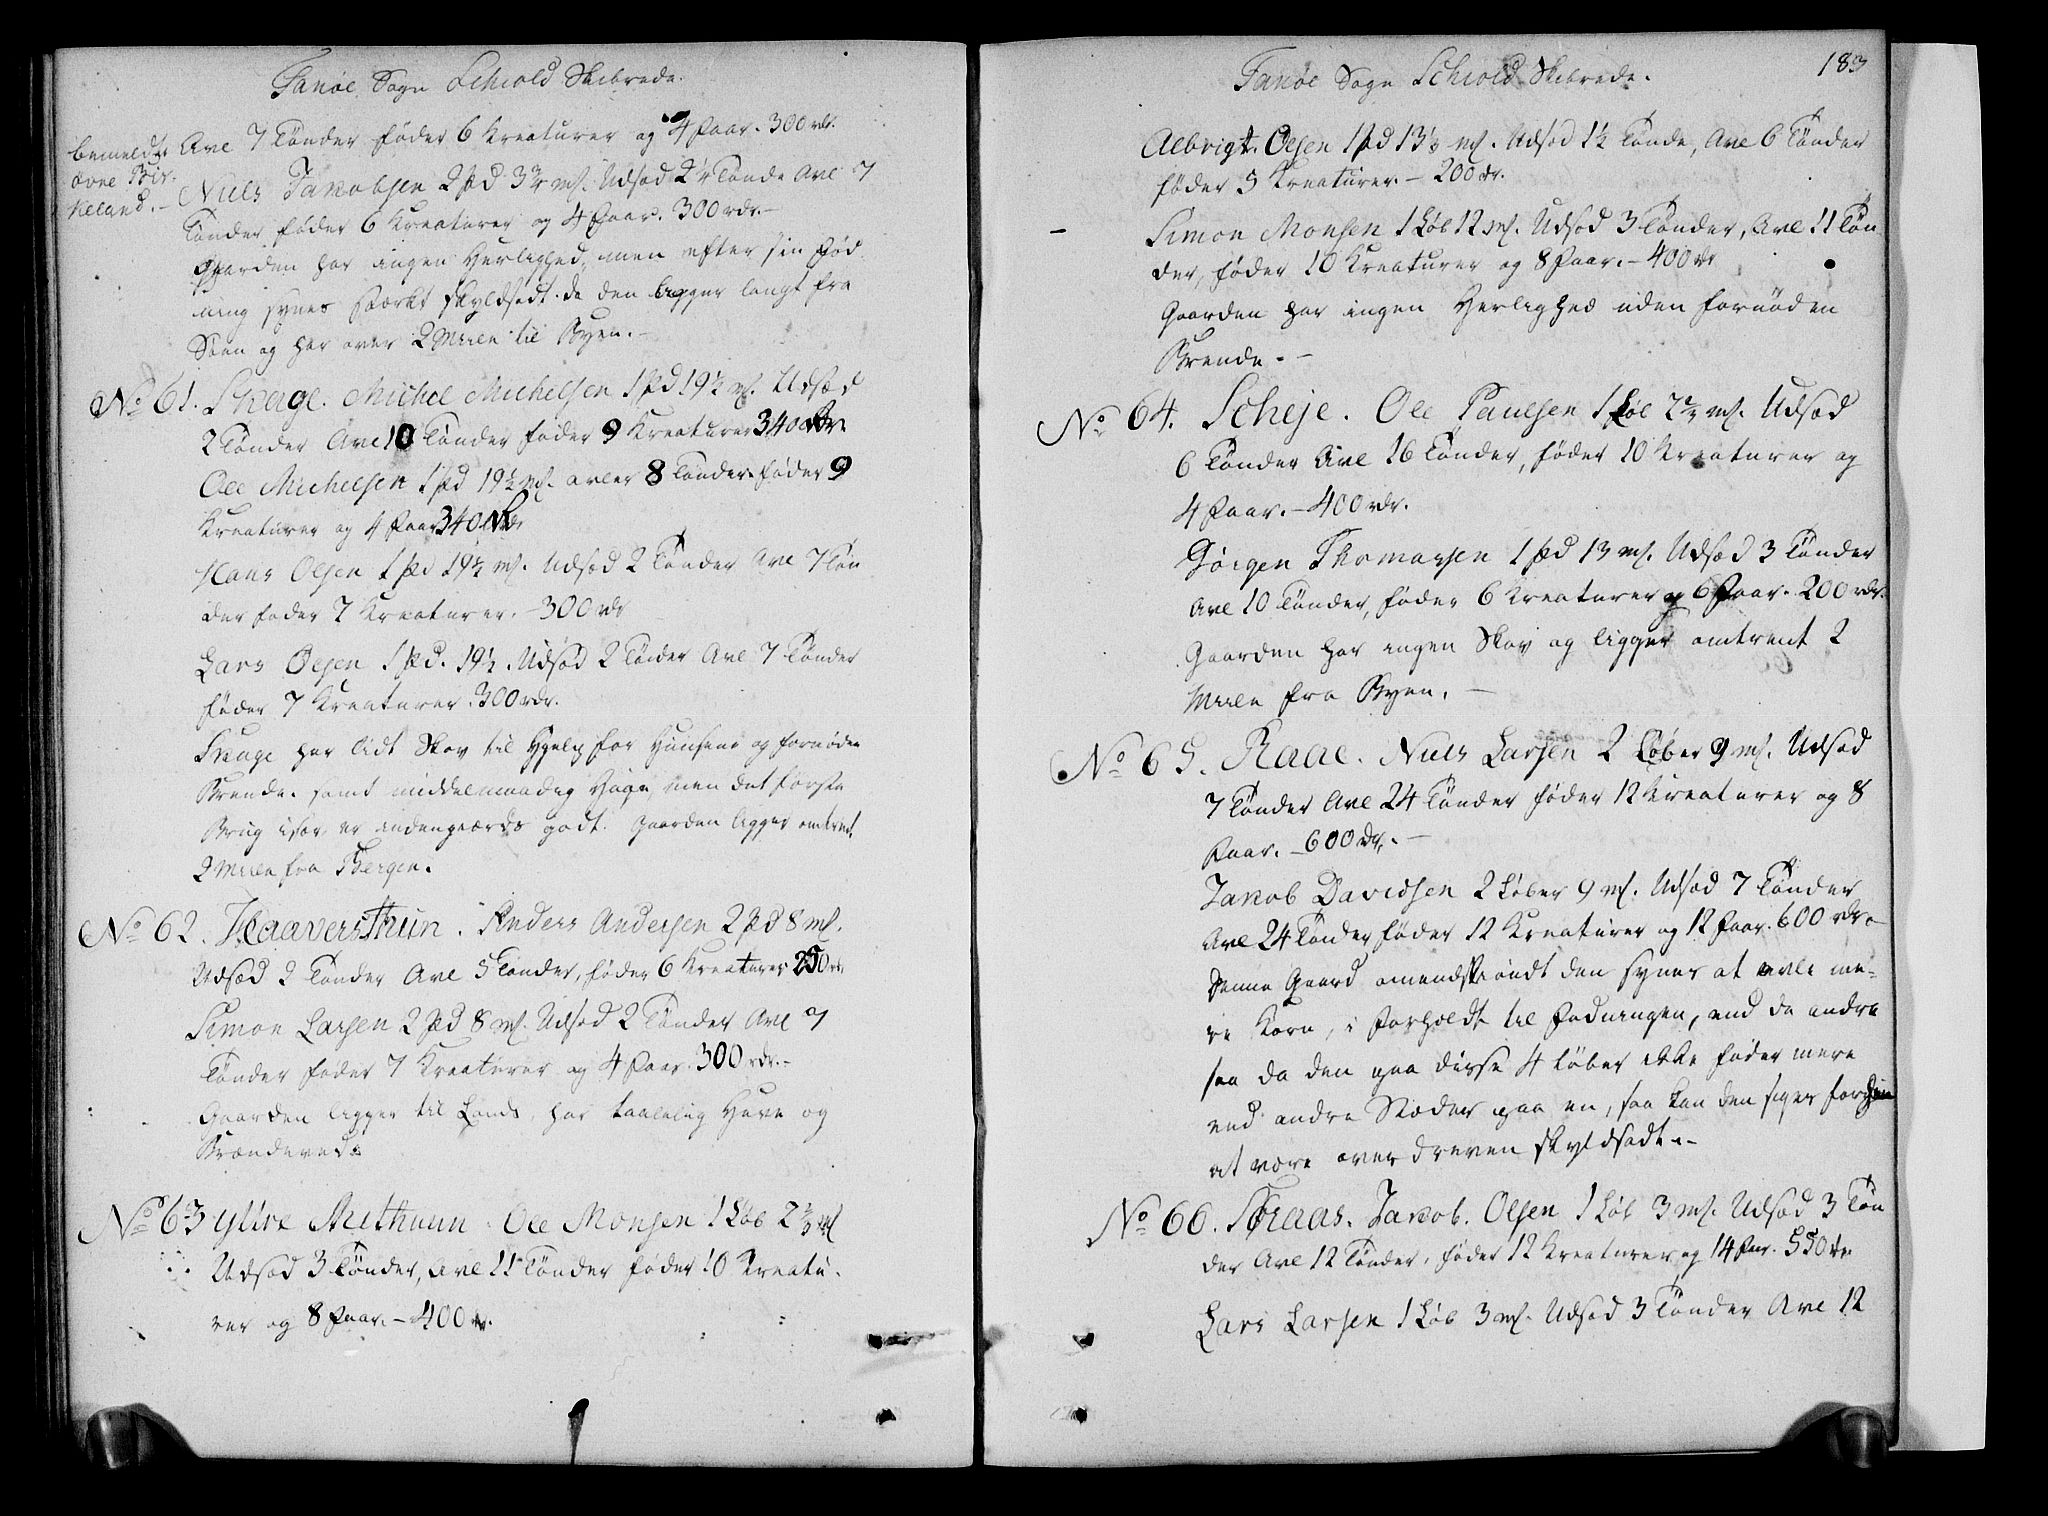 Fanøe Sogn Schiold Skibrede.
bemeldte
øvre Bir-
keland.-
Avl 7 Tønder føder 6 Kreaturer og 4 Faar. 300 rdr.
Niels Jakobsen 2 pd 3¾ mk. Udsæd 2½ Tønde Avl 7
Tønder føder 6 Kreaturer og 4 Faar. 300 rdr.-
Gaarden har ingen Herlighed, men efter sin Fød-
ning synes stærkt skyldsadt. da den ligger langt fra
Søen og har over 2 Miile til Byen.-
No 61. Skage. Michel Michelsen 1 pd. 19½ mk. Udsæd
2 Tønder Avl 10 Tønder føder 9 Kreaturer 340 rdr.
Ole Michelsen 1 pd 19½ mk. avler 8 Tønder. føder 9
Kreaturer og 4 Faar 340 rdr
Hans Olsen 1 pd 19½ mk. Udsæd 2 Tønder Avl 7 Tøn
der føder 7 Kreaturer. - 300 rdr
Lars Olsen 1 pd. 19½. Udsæd 2 Tønder Avl 7 Tønder
føder 7 Kreaturer. 300 rdr.
Skage har lidt Skov til Hjelp for Huusene og fornøden
Brende. samt middelmaadig Hage, men det første
Brug især er indengærds godt. Gaarden ligger omtrent
2 Miile fra Bergen.
No 62. Haaversthun. Anders Andersen 2 pd 8 mk.
Udsæd 2 Tønder Avl 5 Tønder, føder 6 Kreaturer 250 rdr
Simon Larsen 2 pd 8 mk. Udsæd 2 Tønder Avl 7
Tønder føder 7 Kreaturer og 4 Faar. 300 rdr.-
Gaarden ligger til Lands, har taalelig Have og
Brændeved.
No 63 Ytire Melthuun. Ole Monsen 1 Løb 2⅔ mk
Udsæd 3 Tønder, Avl 11 Tønder føder 10 Kreatu-
rer og 8 Faar. - 400 rdr.
Fanøe Sogn Schiold Skibrede.
183
Albrigt. Olsen 1 pd 13½ mk. Udsæd 1½ Tønde, Avl 6 Tønder
føder 5 Kreaturer. - 200 rdr.
Simon Monsen 1 Løb 12 mk. Udsæd 3 Tønder, Avl 11 Tøn
der, føder 10 Kreaturer og 8 Faar. - 400 rdr
Gaarden har ingen Herlighed uden fornøden
Brende. -
No 64. Scheje. Ole Paulsen 1 Løb 2¾ mk. Udsæd
6 Tønder Avl 16 Tønder, føder 10 Kreaturer og
4 Faar. - 400 rdr.
Jørgen Thomassen 1 pd 13 mk. Udsæd 3 Tønder
Avl 10 Tønder, føder 6 Kreaturer og 6 Faar. 200 rdr.
Gaarden har ingen Skov og ligger omtrent 2
Miile fra Byen. -
No 65. Raae. Niels Larsen 2 Løber 9 mk. Udsæd
7 Tønder Avl 24 Tønder føder 12 Kreaturer og 8
Faar. - 600 rdr. -
Jakob Davidsen 2 Løber 9 mk. Udsæd 7 Tønder
Avl 24 Tønder føder 12 Kreaturer og 12 Faar. 600 rdr.-
Denne Gaard omendskiøndt den synes at avle me-
re Korn, i Forholdt til Fødningen, end de andre
saa da den paa disse 4 Løber ikke føder mere
end andre Stæder paa en, saa kan den siges forhen
at være overdreven skyldsadt. -
No 66. Braas. Jakob. Olsen 1 Løb 3 mk. Udsæd 3 Tøn
der Avl 12 Tønder, føder 12 Kreaturer og 14 Faar. 550 rdr
Lars Larsen 1 Løb 3 mk. Udsæd 3 Tønder Avl 12